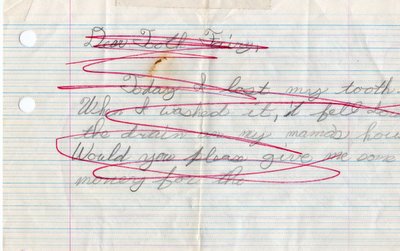 Dear Toth Fairy,
Today I lost my tooth.
When I washed it, it fell
the drain in my mamas
Would you please give me some
money for the